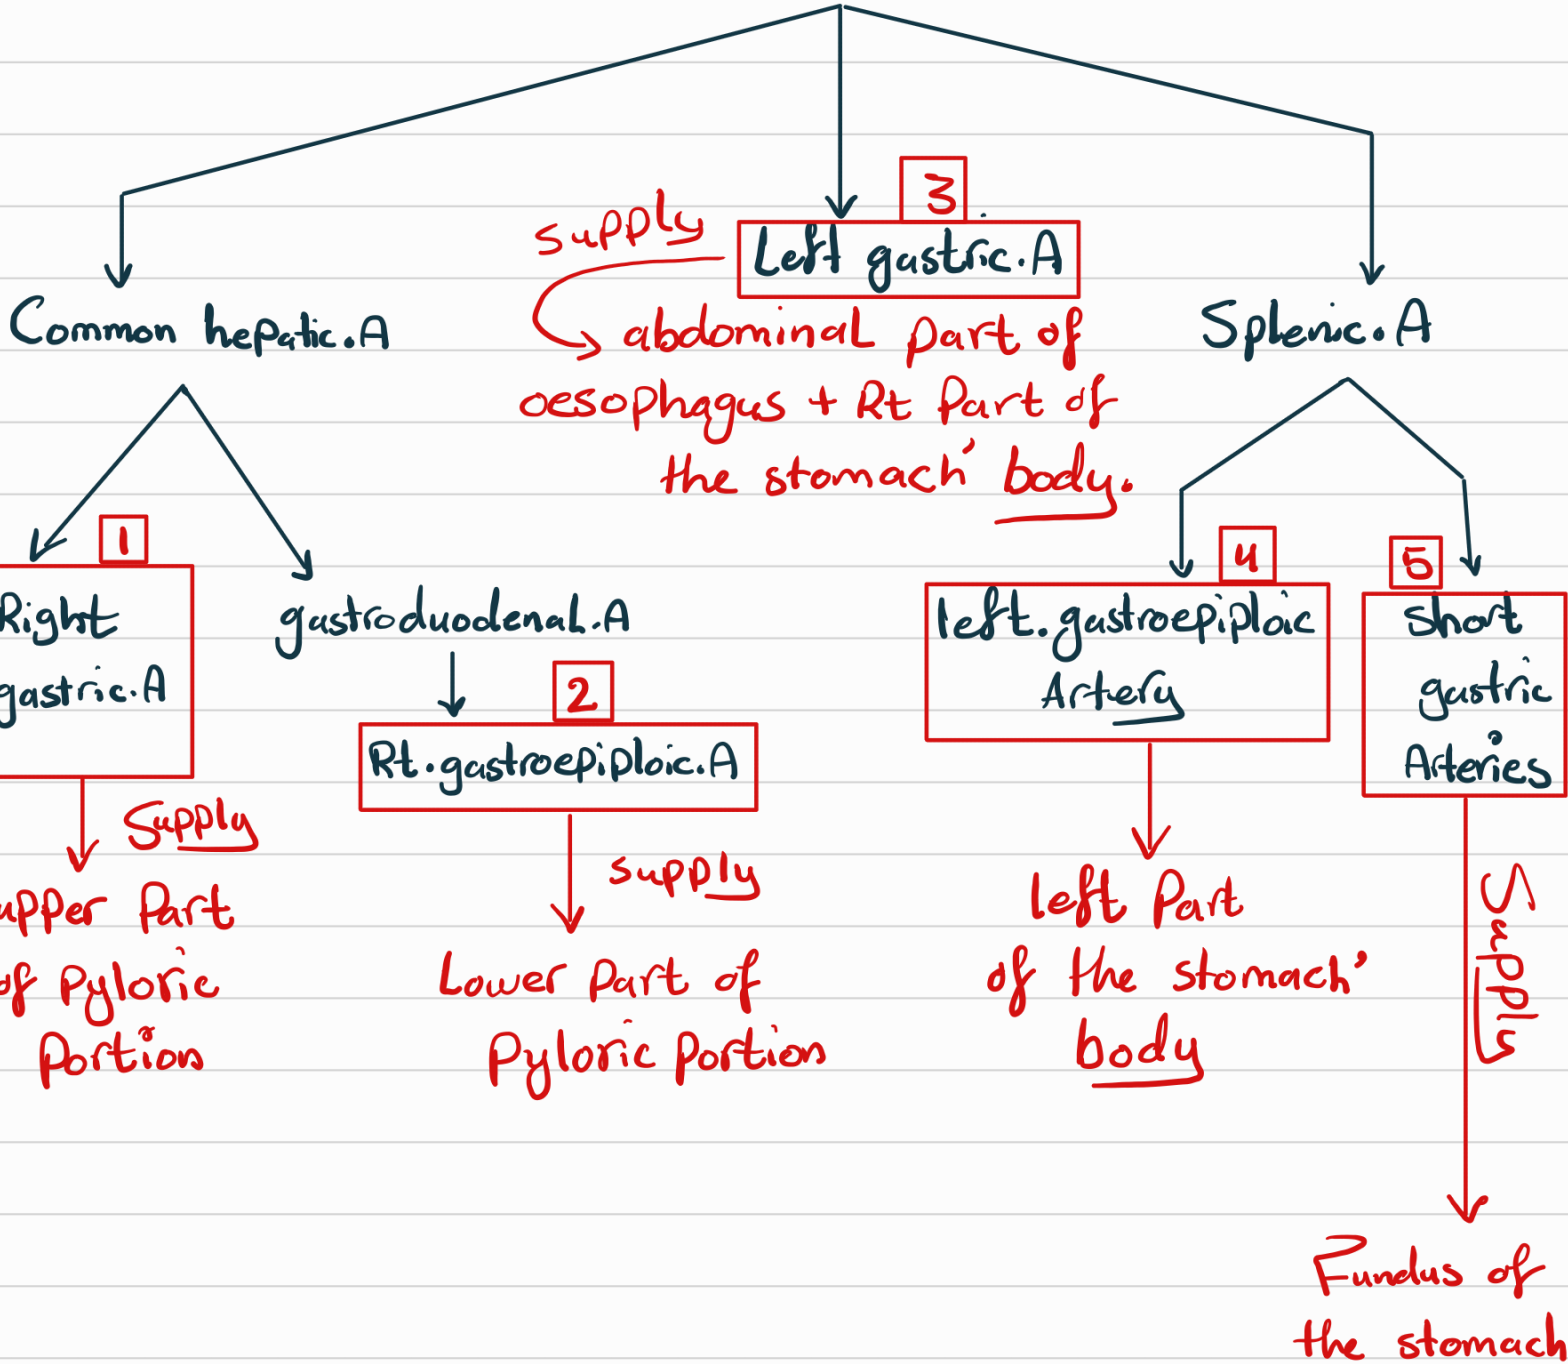 3
supply
Left gastric.A
Common hepatic.A
abdominal part of
oesophagus + Rt Part of
the stomach' body.
Splenic.A
1
Right
gastric.A
supply
upper Part
of Pyloric
Portion
gastroduodenal.A
2
Rt.gastroepiploic.A
supply
Lower Part of
Pyloric Portion
4
left.gastroepiploic
Artery
left Part
of the stomach'
body
5
short
gastric
Arteries
Supply
Fundus of
the stomach